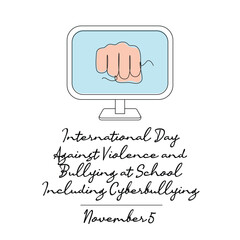 International Day
Against Violence and
Bullying at School
Including Cyberbullying
November 5